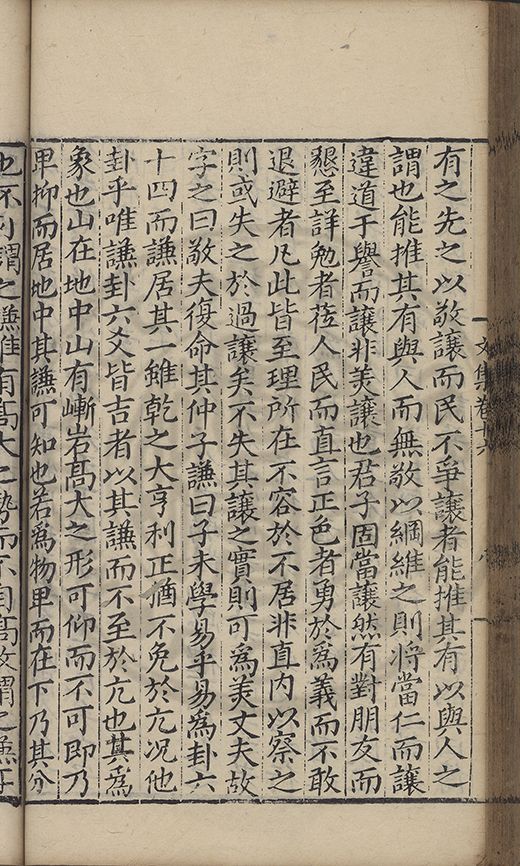 文集卷十六
有之先之以敬讓而民不爭讓者能推其有以與人之
謂也能推其有與人而無敬以綱維之則將當仁而讓
違道干譽而讓非美讓也君子固當讓然有對朋友而
懇至詳勉者莅人民而直言正色者勇於為義而不敢
退避者凡此皆至理所在不容於不居非直内以察之
則或失之於過讓矣不失其讓之實則可為美丈夫故
字之曰敬夫復命其仲子謙曰子未學易乎易為卦六
十四而謙居其一雖乾之大亨利正猶不免於亢况他
卦乎唯謙卦六爻皆吉者以其謙而不至於亢也其為
象也山在地中山有嶄岩髙大之形可仰而不可即乃
卑抑而居地中其謙可知也若為物卑而在下乃其分
也不可謂之謙唯有髙大之勢而不自髙故謂之謙